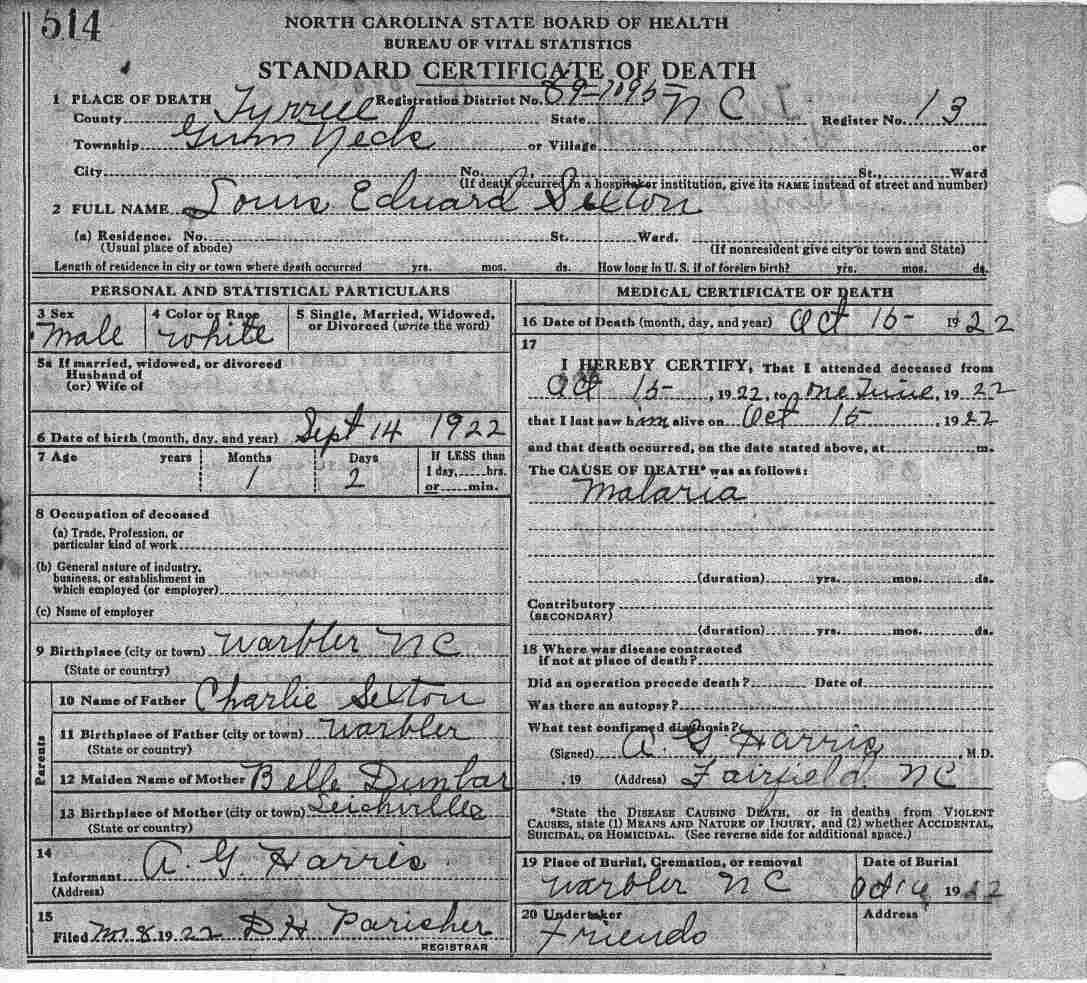 514
NORTH CAROLINA STATE BOARD OF HEALTH
BUREAU OF VITAL STATISTICS
STANDARD CERTIFICATE OF DEATH
1 PLACE OF DEATH Registration District No. 89-7095-
County Tyrrell State N C Register No. 13
Township Gum Neck or Village or
City No. St., Ward
(If death occurred in a hospital or institution, give its NAME instead of street and number)
2 FULL NAME Louis Eduard Sexton
(a) Residence. No. St. Ward.
(Usual place of abode) (If nonresident give city or town and State)
Length of residence in city or town where death occurred yrs. mos. ds. How long in U. S. if of foreign birth? yrs. mos. ds.
PERSONAL AND STATISTICAL PARTICULARS
3 Sex 4 Color or Race 5 Single, Married, Widowed,
or Divorced (write the word)
Male White
5a If married, widowed, or divorced
Husband of
(or) Wife of
6 Date of birth (month, day, and year) Sept 14 1922
7 Age years Months Days If LESS than
1 day, hrs.
1 2 or min.
8 Occupation of deceased
(a) Trade, Profession, or
particular kind of work
(b) General nature of industry,
business, or establishment in
which employed (or employer)
(c) Name of employer
9 Birthplace (city or town) Warbler N C
(State or country)
Parents
10 Name of Father Charlie Sexton
11 Birthplace of Father (city or town) Warbler
(State or country)
12 Maiden Name of Mother Belle Dunbar
13 Birthplace of Mother (city or town)
(State or country)
14
Informant A. G. Harris
(Address)
15
Filed 8 1922 D H Parisher
REGISTRAR
MEDICAL CERTIFICATE OF DEATH
16 Date of Death (month, day, and year) Oct 15- 1922
17
I HEREBY CERTIFY, That I attended deceased from
Oct 15- , 1922, to one Time, 1922
that I last saw him alive on Oct 15 , 1922
and that death occurred, on the date stated above, at m.
The CAUSE OF DEATH* was as follows:
Malaria
(duration) yrs. mos. ds.
Contributory
(SECONDARY)
(duration) yrs. mos. ds.
18 Where was disease contracted
if not at place of death?
Did an operation precede death? Date of
Was there an autopsy?
What test confirmed diagnosis?
(Signed) A. G Harris M.D.
, 19 (Address) Fairfield. NC
*State the DISEASE CAUSING DEATH, or in deaths from VIOLENT
CAUSES, state (1) MEANS AND NATURE OF INJURY, and (2) whether ACCIDENTAL,
SUICIDAL, OR HOMICIDAL. (See reverse side for additional space.)
19 Place of Burial, Cremation, or removal Date of Burial
Warbler N C Oct 16 1922
20 Undertaker Address
Friends